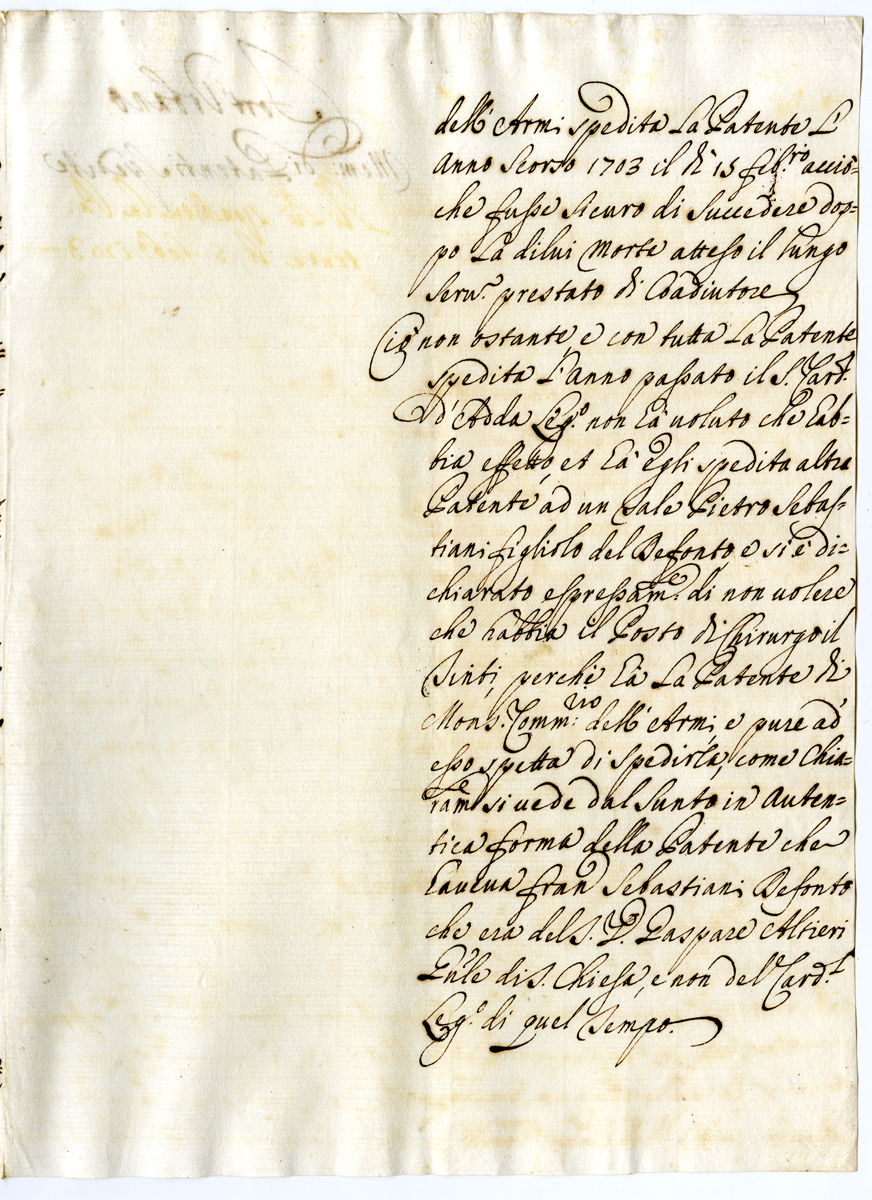 dell'Armi spedita La Patente L'
Anno Scorso 1703 il dì 15 feb:ro acciò=
che fusse sicuro di Succedere dop=
po La dilui Morte atteso il lungo
Seru.o prestato di Coadiutore
Ciò non ostante, e con tutta La Patente
spedita L'anno passato il S. Card.l
d'Adda Leg.o non hà uoluto che hab=
bia effetto, et hà Egli spedita altra
Patente ad un tale Pietro Sebas=
tiani figliolo del Defonto, e si è di=
chiarato espressam.e di non uolere
che habbia il Posto di Chirurgo il
Tinti, perchè hà La Patente di
Mons. Comm:rio dell'Armi, e pure ad
esso spetta di spedirla, come Chia=
ram.e si uede dal Sunto in Auten=
tica forma della Patente che
haueua fran Sebastiani Defonto
che era del S. P. Gaspare Altieri
Gn'le di S. Chiesa, e non del Card.l
Leg.o di quel Tempo.